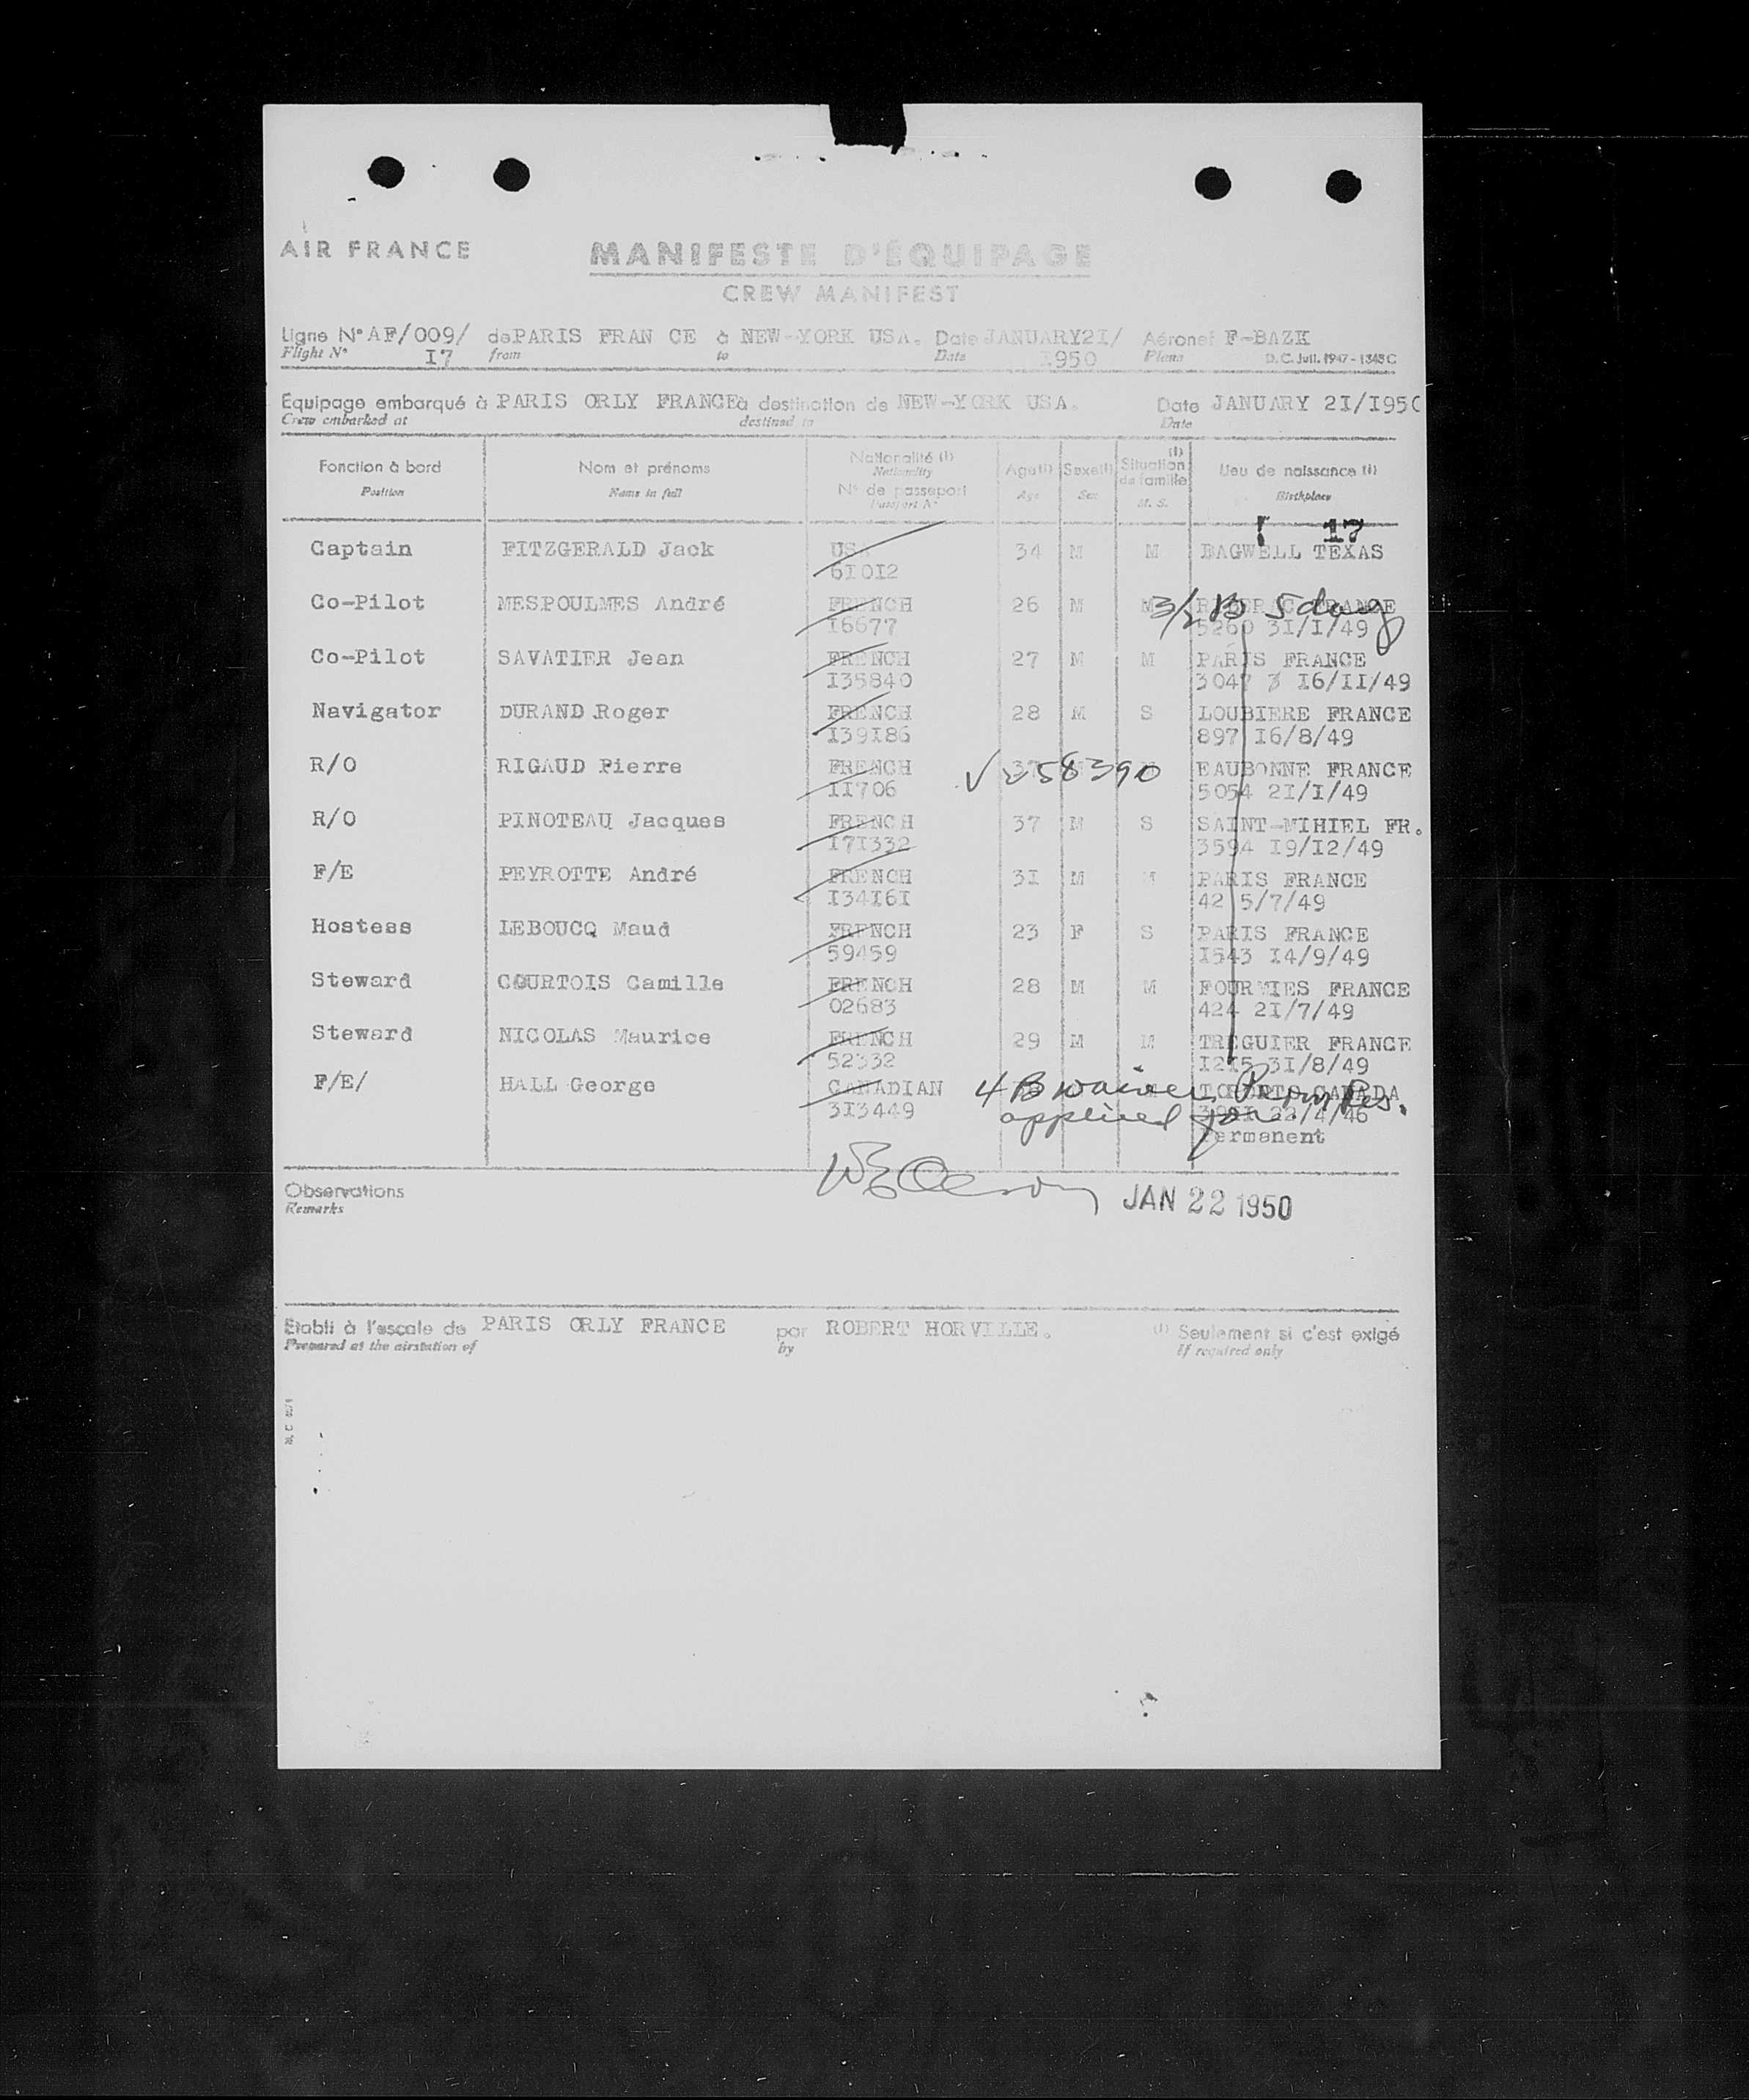 AIR FRANCE
MANIFESTE D'ÉQUIPAGE
CREW MANIFEST
Ligne N° AF/009/ de PARIS FRAN CE à NEW-YORK USA. Date JANUARY2I/ Aéronef F-BAZK
Flight N° I7 from to Date 1950 Plane D.C. Juil. 1947-1348C
Equipage embarqué à PARIS ORLY FRANCE à destination de NEW-YORK USA. Date JANUARY 2I/I950
Crew embarked at destined to Date
Fonction à bord Nom et prénoms Nationalité (1) Age(1) Sexe(1) Situation de famille (1) Lieu de naissance (1)
Position Name in full Nationality Age Sex M. S. Birthplace
N° de passeport
Passport N°
17
Captain FITZGERALD Jack USA 34 M M BAGWELL TEXAS
6I0I2
Co-Pilot MESPOULMES André FRENCH 26 M M FRANCE
3/2 B 5 days
I6677 5260 3I/I/49
Co-Pilot SAVATIER Jean FRENCH 27 M M PARIS FRANCE
I35840 3047 I6/II/49
Navigator DURAND Roger FRENCH 28 M S LOUBIERE FRANCE
I39I86 897 I6/8/49
R/O RIGAUD Pierre FRENCH 37 EAUBONNE FRANCE
√ 258390
II706 5054 2I/I/49
R/O PINOTEAU Jacques FRENCH 37 M S SAINT-MIHIEL FR.
I7I332 3594 I9/I2/49
F/E PEYROTTE André FRENCH 3I M M PARIS FRANCE
I34I6I 42 5/7/49
Hostess LEBOUCQ Maud FRENCH 23 F S PARIS FRANCE
59459 I543 I4/9/49
Steward COURTOIS Camille FRENCH 28 M M FOURMIES FRANCE
02683 424 2I/7/49
Steward NICOLAS Maurice FRENCH 29 M M TREGUIER FRANCE
52332 I2I5 3I/8/49
F/E/ HALL George CANADIAN TORONTO CANADA
4 B waiver Perm Res.
applied for.
3I3449 22/4/46
Permanent
JAN 22 1950
Observations
Remarks
Etabli à l'escale de PARIS ORLY FRANCE par ROBERT HORVILLE. (1) Seulement si c'est exigé
Prepared at the airstation of by If required only